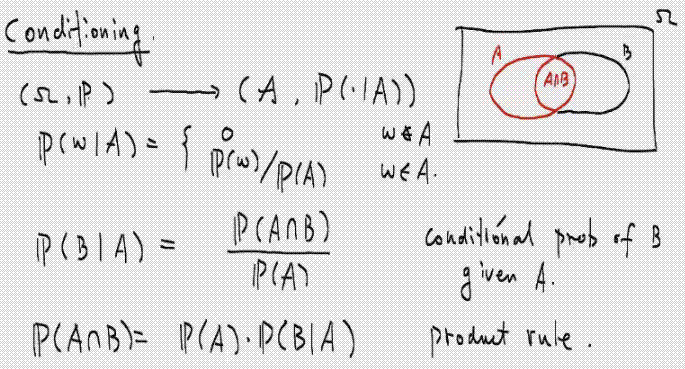 Conditioning.
Ω
A B
A∩B
(Ω, ℙ) ⟶ (A, ℙ(·|A))
ℙ(ω|A) = { 0 ω∉A
ℙ(ω)/ℙ(A) ω∈A.
ℙ(B|A) = ℙ(A∩B)/ℙ(A) conditional prob of B
given A.
ℙ(A∩B) = ℙ(A)·ℙ(B|A) product rule.